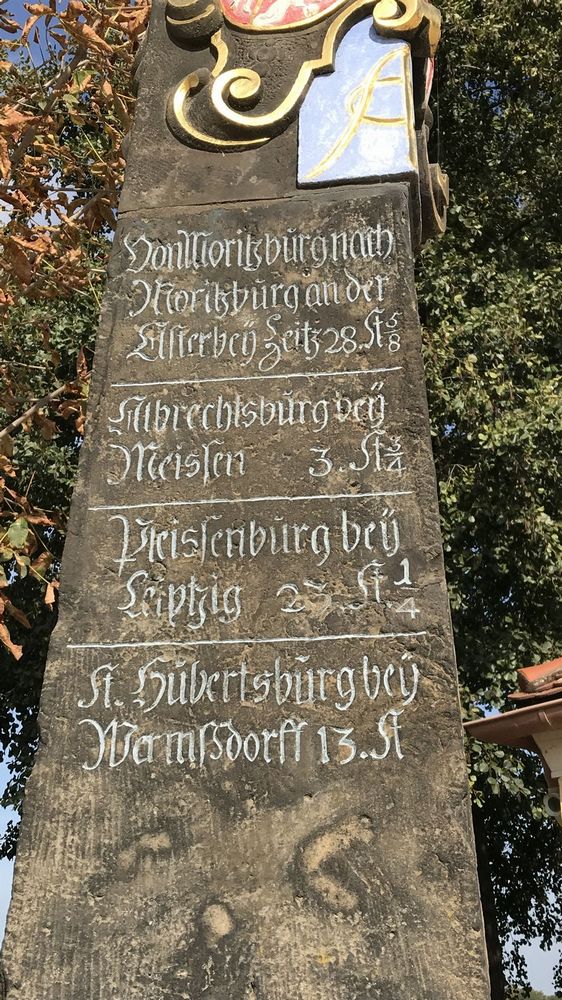 Von Moritzburg nach
Moritzburg an der
Elster beÿ Zeitz 28. St 5/8
Albrechtsburg beÿ
Meissen 3. St 3/4
Pleissenburg beÿ
Leiptzig 23. St 1/4
St. Hubertsburg beÿ
Wermsdorff 13. St